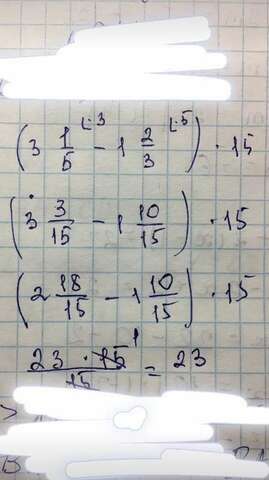 (3 1/5 ⌊·3 − 1 2/3 ⌊·5) · 15
(3 3/15 − 1 10/15) · 15
(2 18/15 − 1 10/15) · 15
23 · 15 1/15 = 23